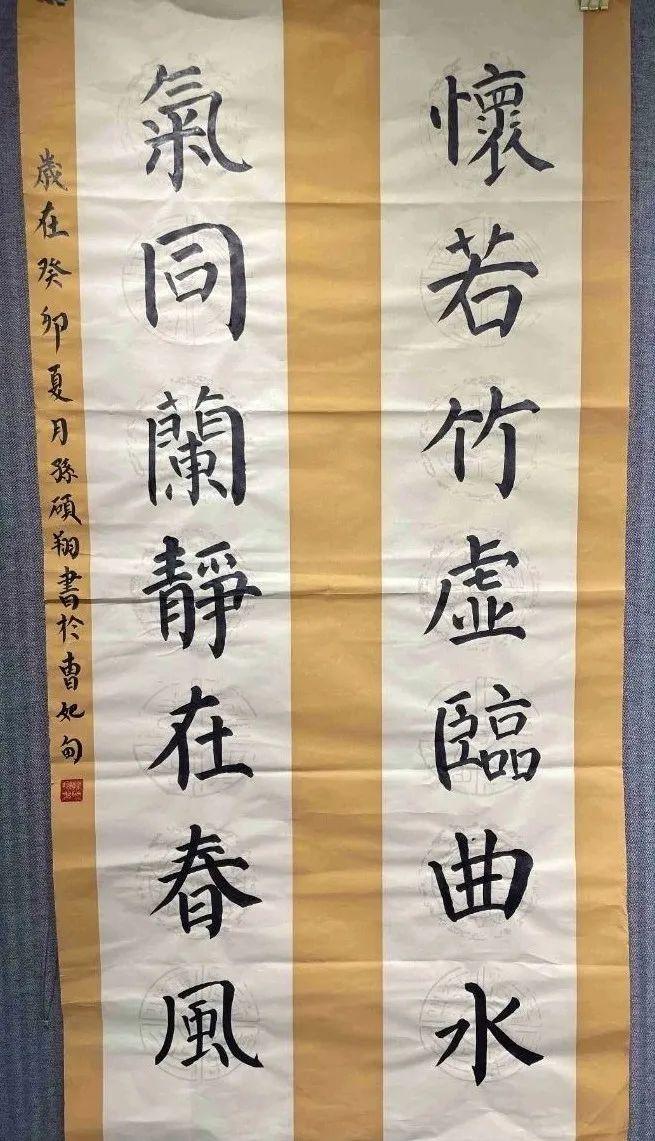 懷若竹虛臨曲水
氣同蘭靜在春風
歲在癸卯夏月孫碩翔書於曹妃甸